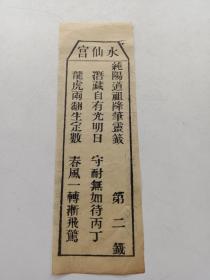 水仙宮
純陽道祖降筆靈籤　第二籤
潛藏自有光明日　守耐無如待丙丁
龍虎兩翻生定數　春風一轉漸飛鶯